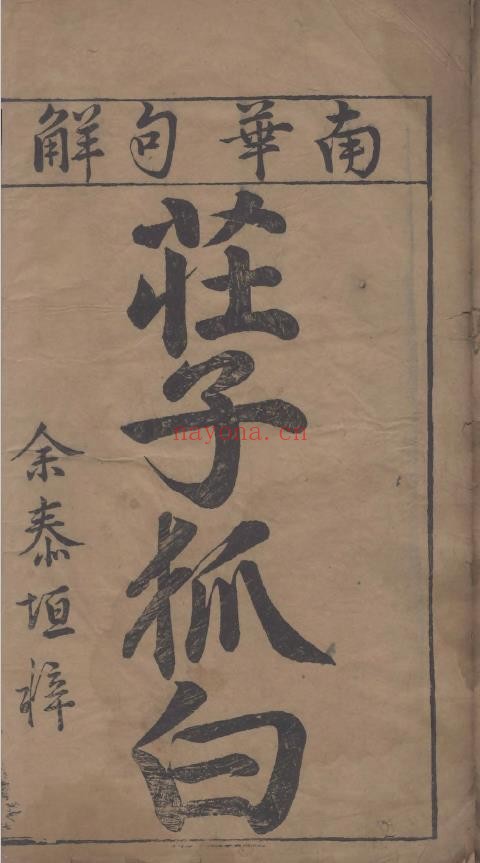 南華句解
莊子狐白
余泰垣梓
nayona.cn